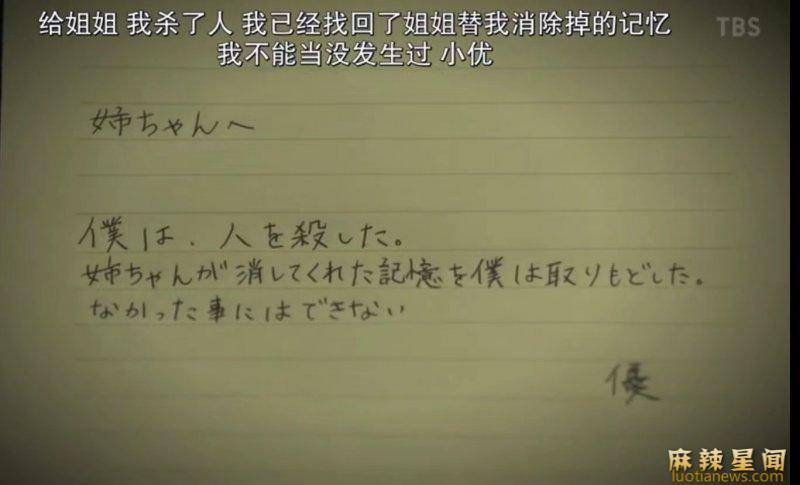 给姐姐 我杀了人 我已经找回了姐姐替我消除掉的记忆
我不能当没发生过 小优
TBS
姉ちゃんへ
僕は、人を殺した。
姉ちゃんが消してくれた記憶を僕は取りもどした。
なかった事にはできない
優
麻辣星闻
luotianews.com